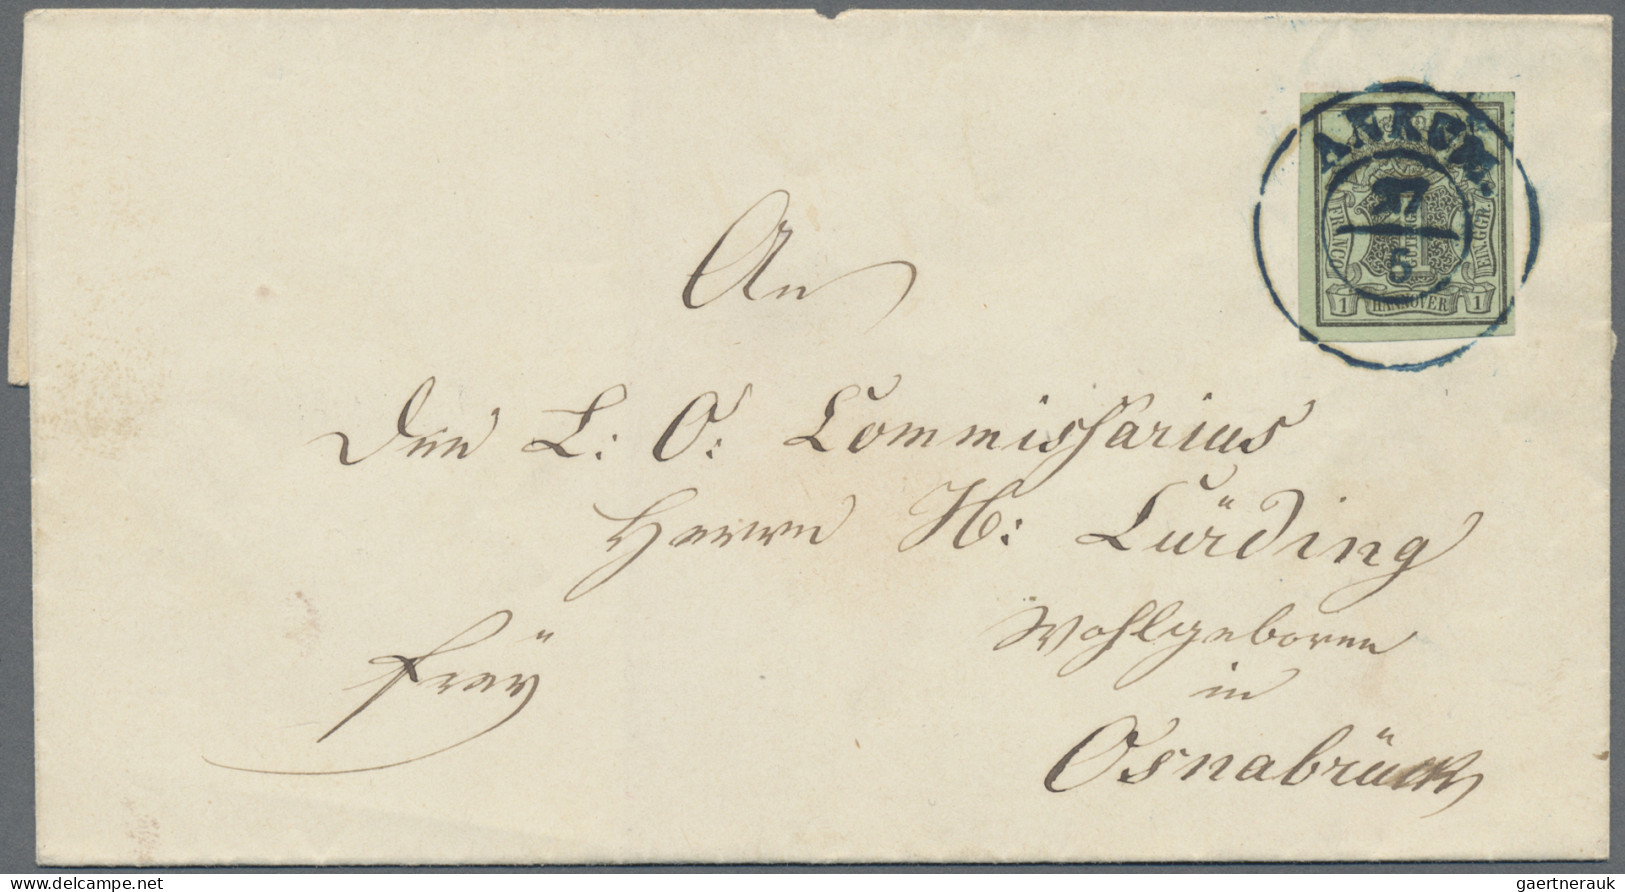 ANKUM.
27
5
FRANCO
EIN GGR.
1 HANNOVER 1
An
Den L: O: Commissarius
Herrn H: Lürding
Wohlgeboren
in
Osnabrück
Freÿ
www.delcampe.net
gaertnerauk